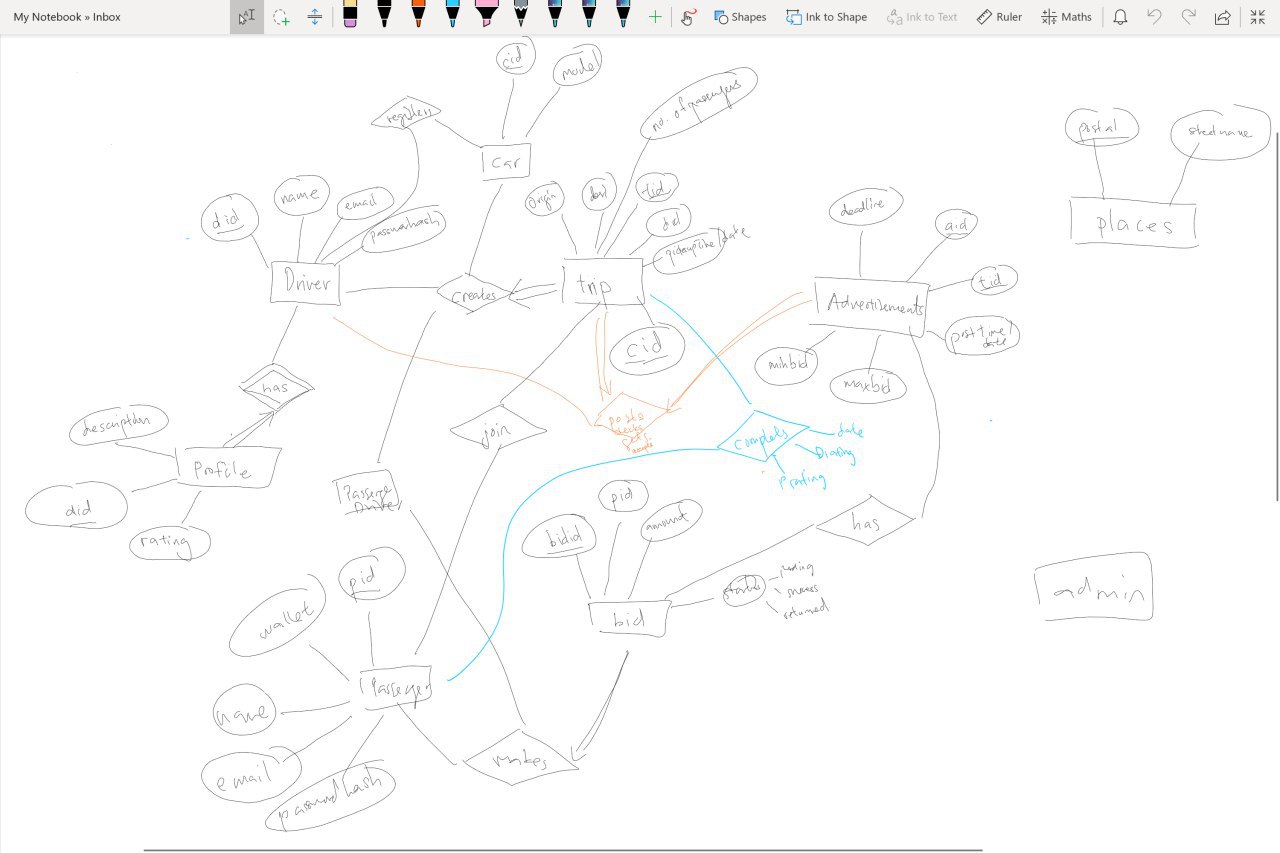 My Notebook » Inbox
Shapes
Ink to Shape
Ink to Text
Ruler
Maths
cid
model
registers
no. of passengers
car
postal
places
did
name
email
passwordhash
Driver
origin
dest
tid
did
trip
creates
cid
deadline
aid
tid
Advertisements
minbid
maxbid
post time/
date
has
description
Profile
did
rating
join
completes
date
Drating
Prating
Passenger
Driver
pid
bidid
amount
bid
status
pending
success
returned
has
admin
wallet
pid
Passenger
name
email
passwordhash
makes